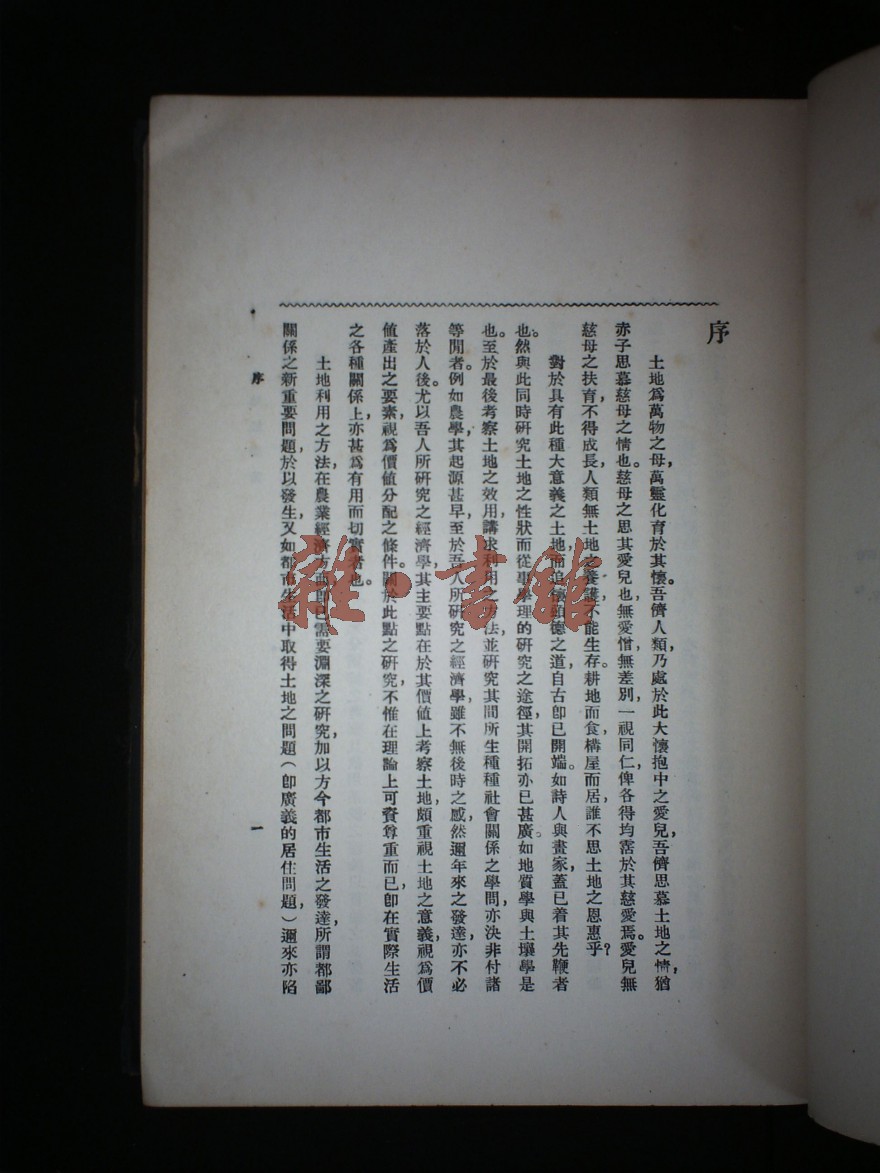 序
土地爲萬物之母，萬靈化育於其懷。吾儕人類，乃處於此大懷抱中之愛兒，吾儕思慕土地之情，猶
赤子思慕慈母之情也。慈母之思其愛兒也，無愛憎，無差別，一視同仁，俾各得均霑於其慈愛焉。愛兒無
慈母之扶育，不得成長，人類無土地之養護，不能生存。耕地而食，構屋而居，誰不思土地之恩惠乎？
對於具有此種大意義之土地，而追懷頌德之道，自古卽已開端。如詩人與畫家，蓋已着其先鞭者
也。然與此同時研究土地之性狀而從事學理的研究之途徑，其開拓亦已甚廣。如地質學與土壤學是
也。至於最後考察土地之效用，講求利用之方法，並研究其間所生種種社會關係之學問，亦決非付諸
等閒者。例如農學，其起源甚早，至於吾人所研究之經濟學，雖不無後時之感，然邇年來之發達，亦不必
落於人後。尤以吾人所研究之經濟學，其主要點在於其價値上考察土地，頗重視土地之意義，視爲價
値產出之要素，視爲價値分配之條件。關於此點之研究，不惟在理論上可資尊重而已，卽在實際生活
之各種關係上，亦甚爲有用而切實者也。
土地利用之方法，在農業經濟方面卽已需要淵深之研究，加以方今都市生活之發達，所謂都鄙
關係之新重要問題，於以發生，又如都市生活中取得土地之問題（卽廣義的居住問題，）邇來亦陷
序
一
雜·書館